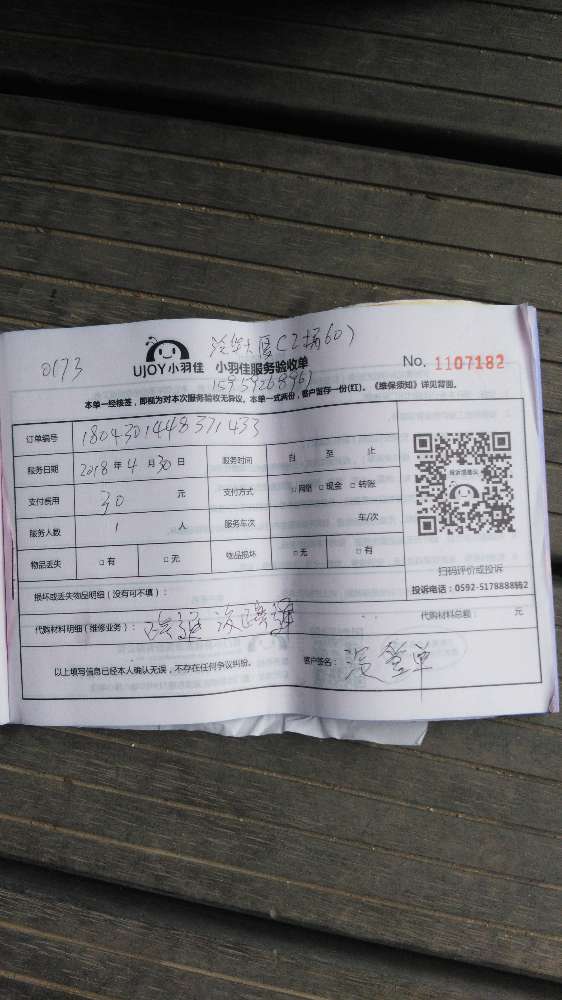 0173
大厦(2梯60)
UJOY小羽佳 小羽佳服务验收单 No. 1107182
本单一经核签，即视为对本次服务验收无异议。本单一式两份，客户留存一份(红)。《维保须知》详见背面。
订单编号 1804301448371433
服务日期 2018年4月30日 服务时间 自 至 止
支付费用 30 元 支付方式 □网络 □现金 □转账
服务人数 1 人 服务车次 车/次
物品丢失 □有 □无 物品损坏 □无 □有
扫码评价或投诉
投诉电话：0592-5178888转2
损坏或丢失物品明细（没有可不填）：
代购材料明细（维修业务）： 代购材料总额 元
以上填写信息已经本人确认无误，不存在任何争议纠纷。 客户签名： 没签单